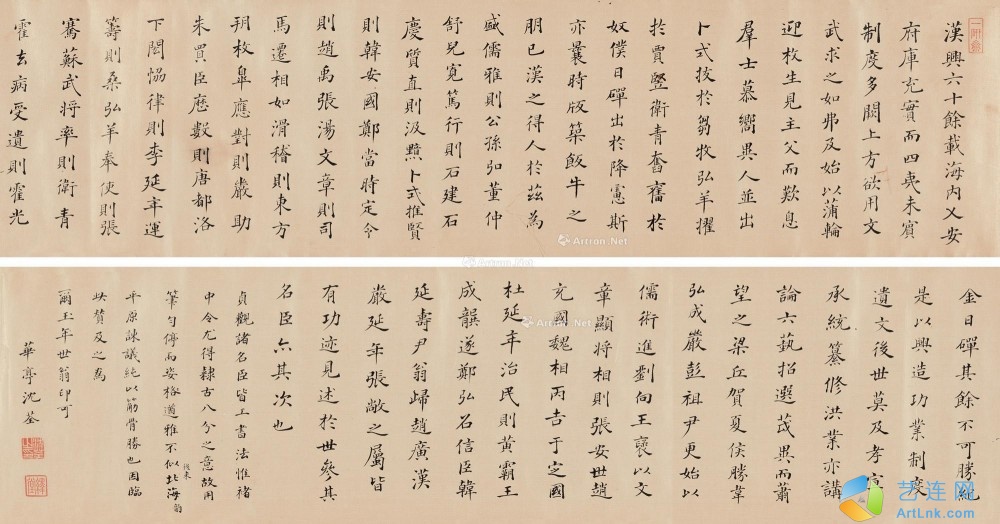 漢興六十餘載海內乂安
府庫充實而四夷未賓
制度多闕上方欲用文
武求之如弗及始以蒲輪
迎枚生見主父而歎息
羣士慕嚮異人並出
卜式拔於芻牧弘羊擢
於賈豎衛青奮於
奴僕日磾出於降虜斯
亦曩時版築飯牛之
朋已漢之得人於茲為
盛儒雅則公孫弘董仲
舒兒寬篤行則石建石
慶質直則汲黯卜式推賢
則韓安國鄭當時定令
則趙禹張湯文章則司
馬遷相如滑稽則東方
朔枚皋應對則嚴助
朱買臣歷數則唐都洛
下閎協律則李延年運
籌則桑弘羊奉使則張
騫蘇武將率則衛青
霍去病受遺則霍光
金日磾其餘不可勝紀
是以興造功業制度
遺文後世莫及孝宣
承統纂修洪業亦講
論六藝招選茂異而蕭
望之梁丘賀夏侯勝韋
弘成嚴彭祖尹更始以
儒術進劉向王襃以文
章顯將相則張安世趙
充國魏相丙吉于定國
杜延年治民則黃霸王
成龔遂鄭弘召信臣韓
延壽尹翁歸趙廣漢
嚴延年張敞之屬皆
有功迹見述於世參其
名臣亦其次也
貞觀諸名臣皆工書法惟褚
中令尤得隸古八分之意故用
筆勻停而姿格遒雅不似北海
後來
平原諫議純以筋骨勝也因臨
此贊及之為
爾玉年世翁印可
華亭沈荃
Artron.Net
艺连网
ArtLnk.com